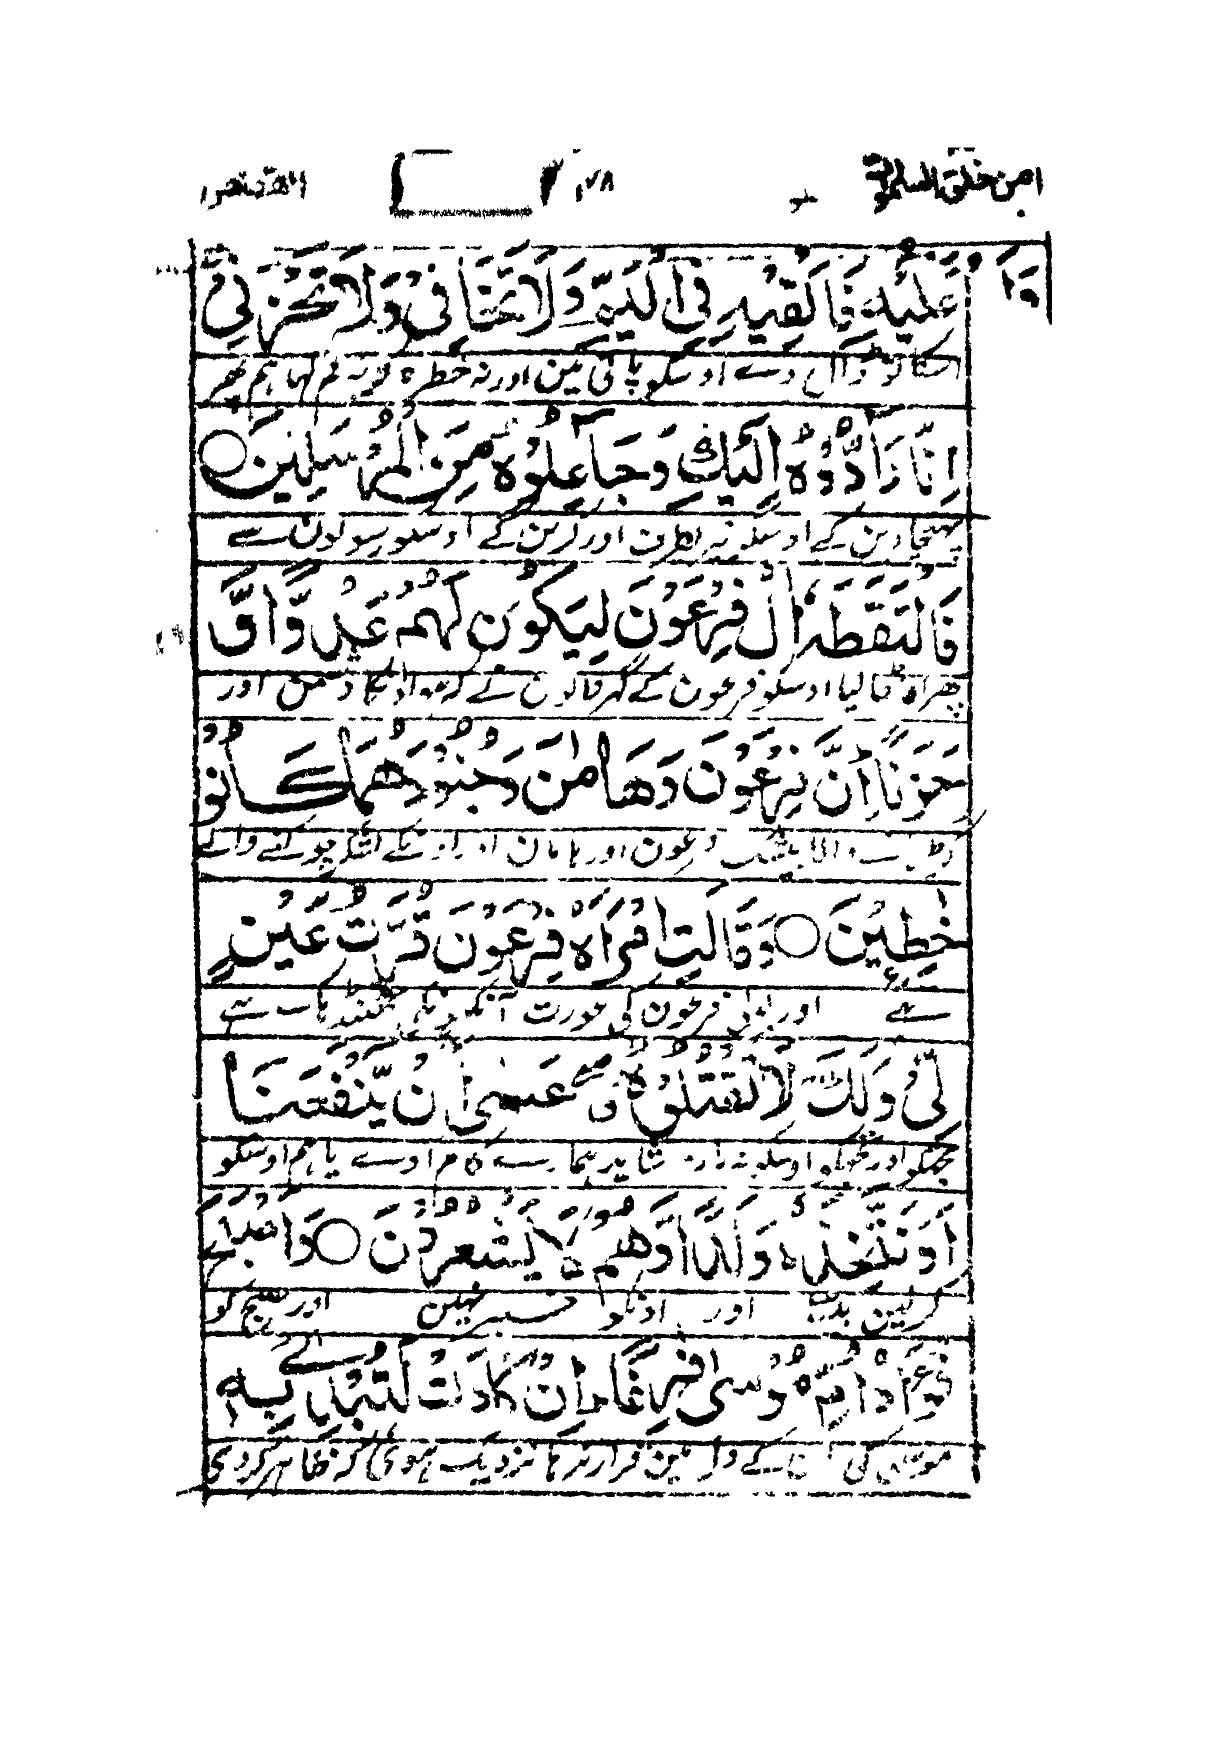 امن خلق السموت ۲۸ القصص
عَلَيْهِ فَاَلْقِيْهِ فِي الْيَمِّ وَلَا تَخَافِيْ وَلَا تَحْزَنِيْ
دے اوسکو پانی مین اور نہ خطرہ غم کہا ہم پھر
اِنَّا رَآدُّوْهُ اِلَيْكِ وَجَاعِلُوْهُ مِنَ الْمُرْسَلِيْنَ
پہنچا دین گے اوسکو تیری طرف اور کرین گے اوسکو رسولون سے
فَالْتَقَطَهٗ اٰلُ فِرْعَوْنَ لِيَكُوْنَ لَهُمْ عَدُوًّا وَّ
پھر اوٹھا لیا اوسکو فرعون کے گھر والون نے کہ ہو اونکا دشمن اور
حَزَنًا اِنَّ فِرْعَوْنَ وَهَامٰنَ وَجُنُوْدَهُمَا كَانُوْا
والا بیشک فرعون اور ہامان اور اونکے لشکر چوکنے والے
خٰطِـِٕيْنَ وَقَالَتِ امْرَاَةُ فِرْعَوْنَ قُرَّتُ عَيْنٍ
تھے اور بولی فرعون کی عورت آنکھونکی ٹھنڈک ہے
لِّيْ وَلَكَ لَا تَقْتُلُوْهُ عَسٰٓى اَنْ يَّنْفَعَنَا
مجھکو اور تجھکو اوسکو نہ مارو شاید ہمارے کام آوے یا ہم اوسکو
اَوْ نَتَّخِذَهٗ وَلَدًا وَّهُمْ لَا يَشْعُرُوْنَ وَاَصْبَحَ
کرلین بیٹا اور اونکو خبر نہین اور صبح کو
فُؤَادُ اُمِّ مُوْسٰى فٰرِغًا اِنْ كَادَتْ لَتُبْدِيْ بِهٖ
موسی کی مان کے دل مین قرار نہ رہا نزدیک ہوئی کہ ظاہر کردے